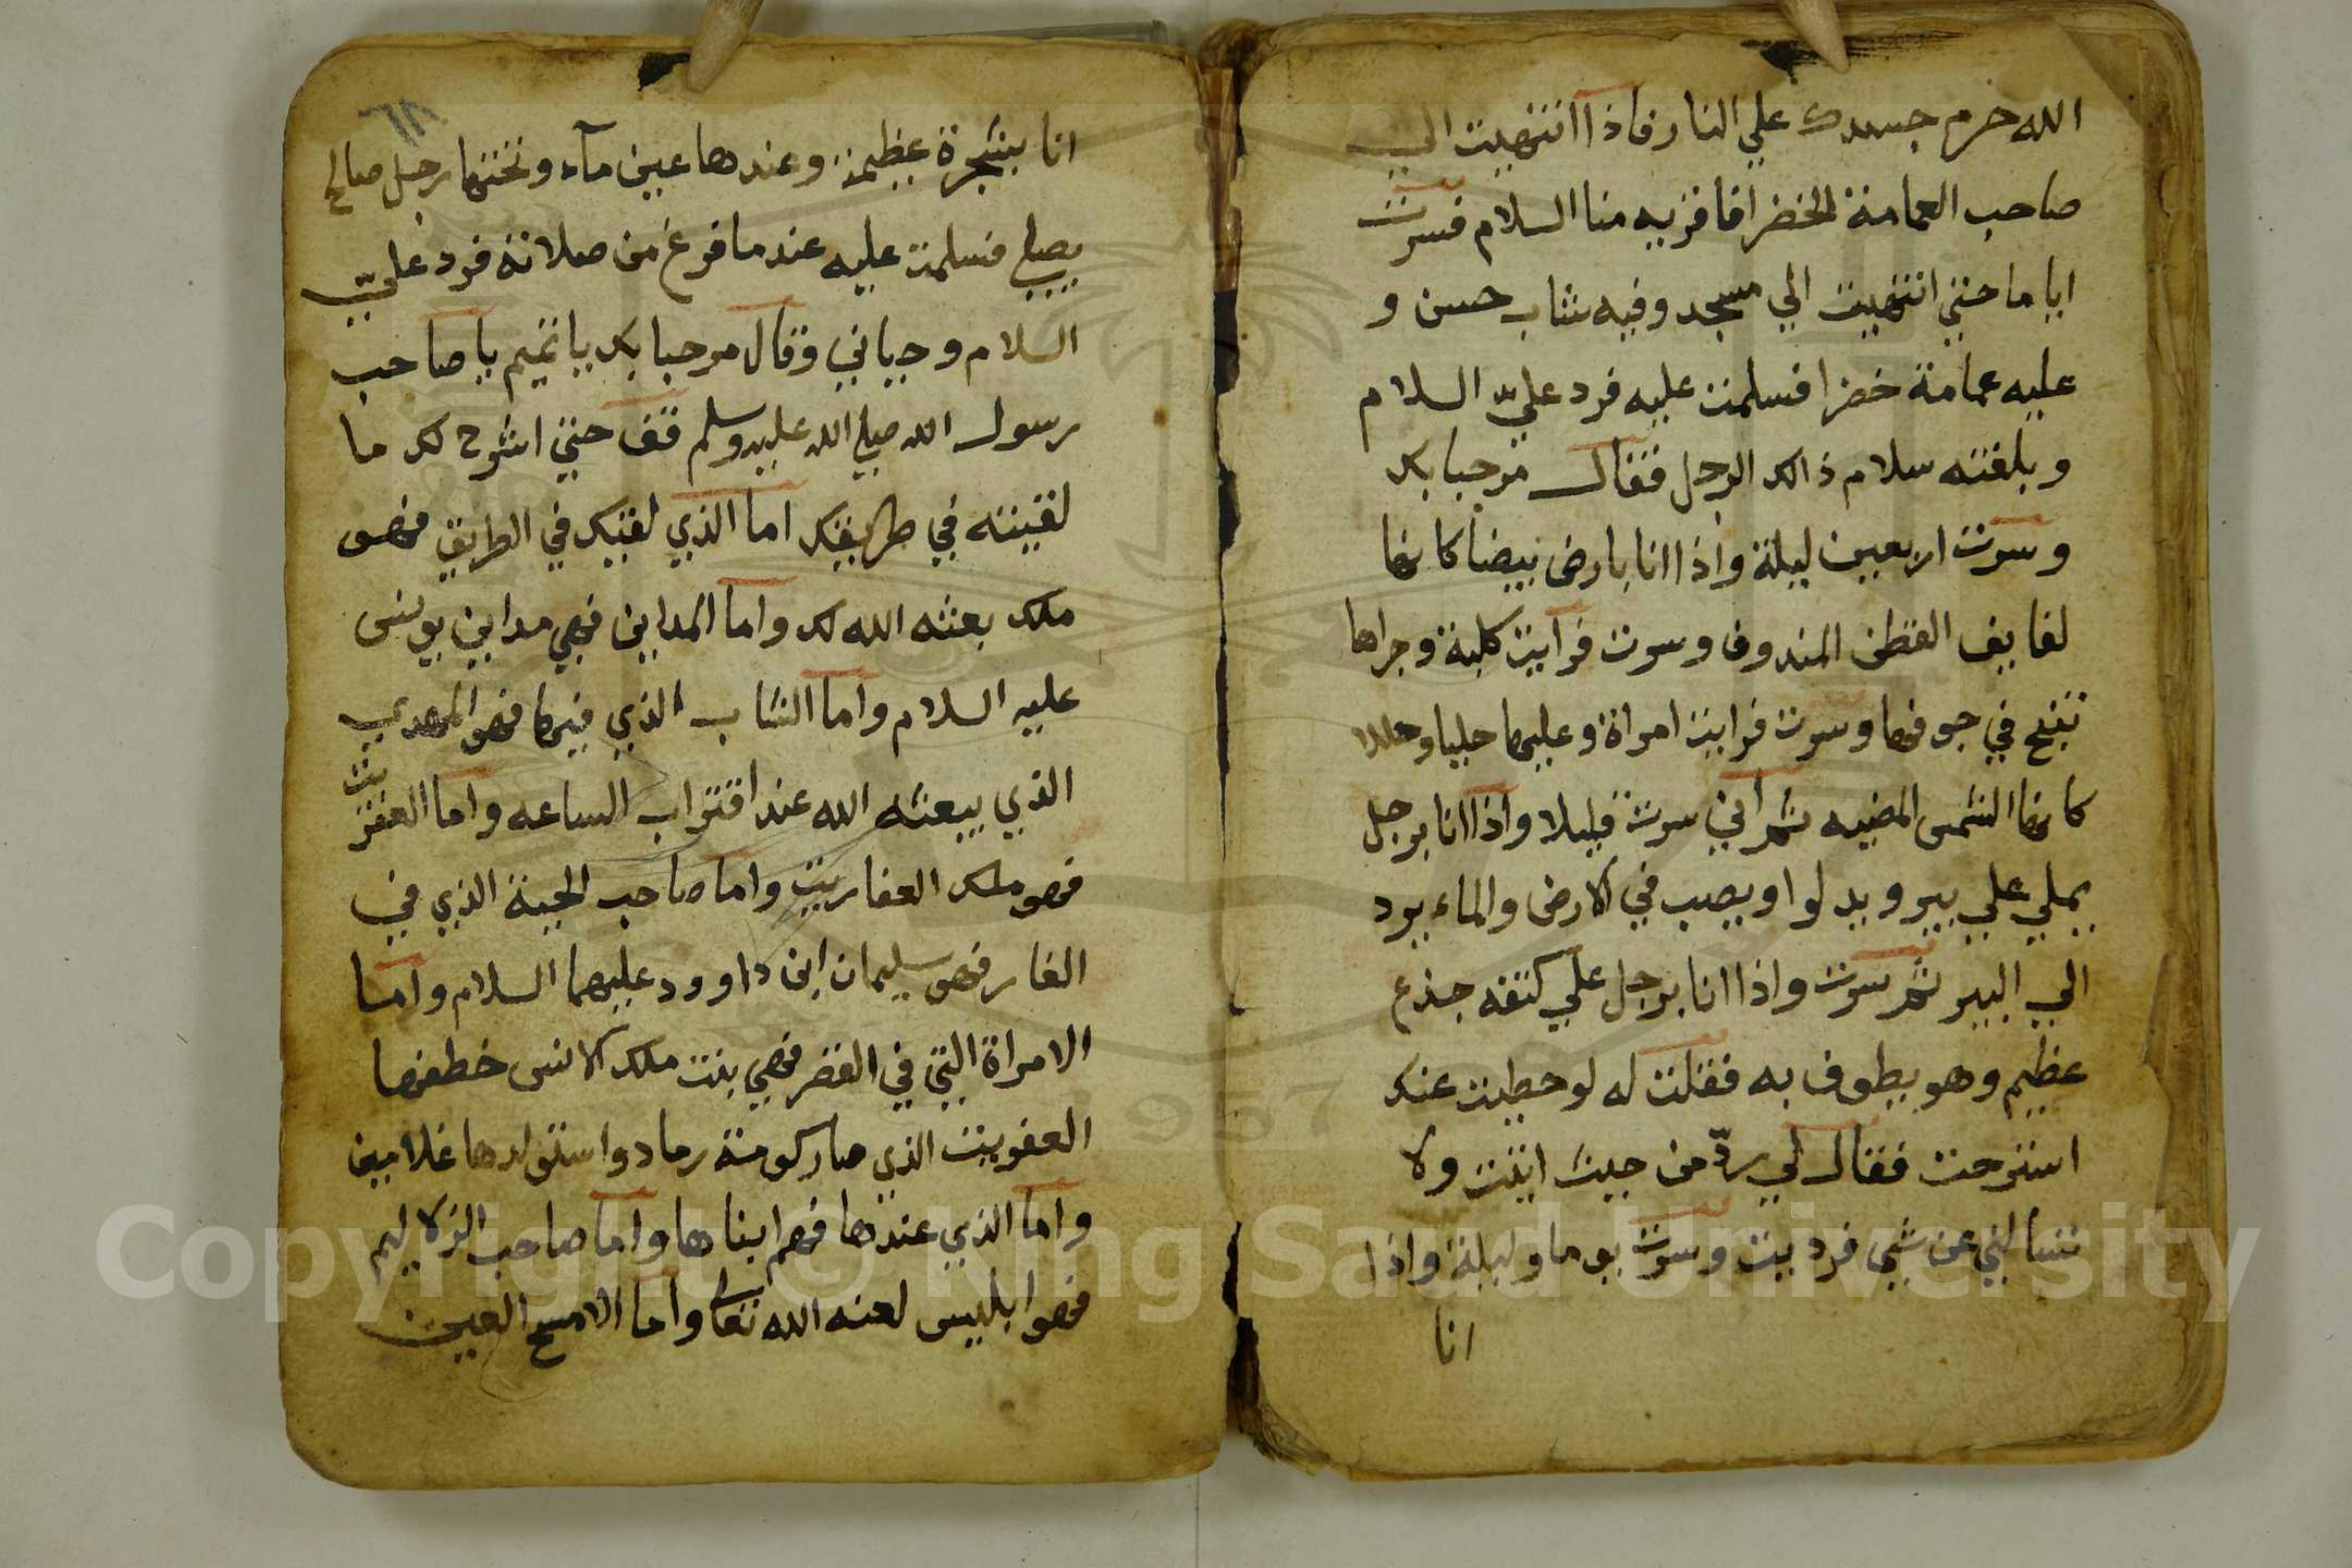 الله حرم جسدك علي النار فاذا انتهيت الي
صاحب العمامة الخضرا فاقريه منا السلام فسرت
اياما حتي انتهيت الي مسجد وفيه شاب حسن و
عليه عمامة خضرا فسلمت عليه فرد عليّ السلام
وبلغته سلام ذالك الرجل فقال مرحبا بك
وسرت اربعين ليلة واذا انا بارض بيضا كانها
لفايف القطن المندوف وسرت فرايت كلبة وجراها
تنبح في جوفها وسرت فرايت امراة وعليها حليا وحللا
كانها الشمس المضيه ثم اني سرت قليلا واذا انا برجل
يملي علي بير وبدلوا ويصب في الارض والماء يرد
الي البير ثم سرت واذا انا برجل علي كتفه جذع
عظيم وهو يطوف به فقلت له لو حطيت عنك
استرحت فقال لي ردّ من حيث اتيت ولا
تسالني عن شي فرديت وسرت يوما وليلة واذا
انا
٦٨
انا بشجرة عظيمة وعندها عين مآء وتحتها رجل صالح
يصلي فسلمت عليه عندما فرغ من صلاته فرد عليّ
السلام وحياني وقال مرحبا بك يا تميم يا صاحب
رسول الله صلي الله عليه وسلم قف حتي اشرح لك ما
لقيته في طريقك اما الذي لقيك في الطريق فهو
ملك بعثه الله لك واما المداين فهي مداين يونس
عليه السلام واما الشاب الذي فيها فهو المهدي
الذي يبعثه الله عند اقتراب الساعه واما العفريت
فهو ملك العفاريت واما صاحب الجبة الذي في
الغار فهو سليمان ابن داوود عليهما السلام واما
الامراة التي في القصر فهي بنت ملك الانس خطفها
العفريت الذي صار كومة رماد واستولدها غلامين
واما الذي عندها فهم ابناها واما صاحب الزلاليم
فهو ابليس لعنه الله تعا واما الامسح العين
Copyright © King Saud University
1957